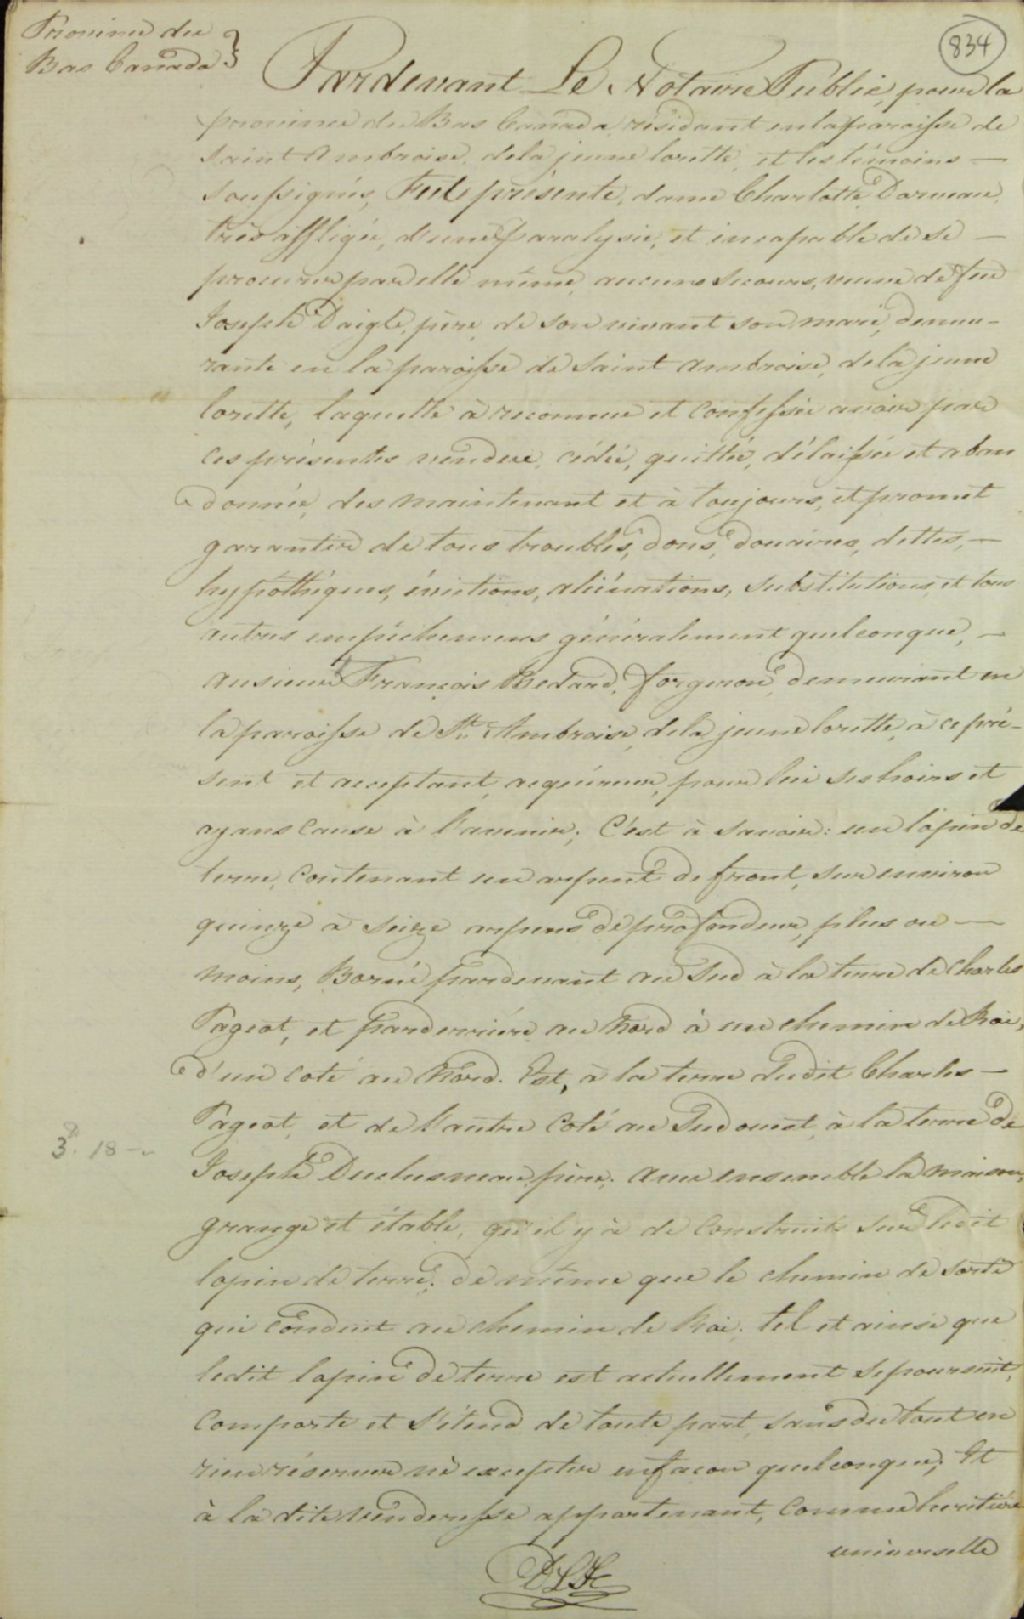 Province du
Bas Canada }
834
Pardevant Le Notaire Public, pour la
province du Bas Canada, résidant en la paroisse de
Saint Ambroise, dela jeune lorette, et les témoins —
soussignés, Fut présente, dame Charlotte Daruau,
très affligée, d'une Paralysie, et incapable de se —
procurer par elle même, aucuns secours, veuve de feu
Joseph Daigle, père, de son vivant son mari, demeu-
rante en la paroisse de Saint Ambroise, dela jeune
lorette, laquelle à reconnue et confessée avoir par
ces présentes vendue, cédée, quittée, délaissée et aban
donnée, des maintenant et à toujours, et promet
garantir de tous troubles, dons, douaires, dettes, —
hypothéques, évictions, aliénations, substitutions, et tous
autres empêchemens généralement quelconque, —
au sieur François Bedard, forgeron, demeurant en
la paroisse de St. Ambroise, dela jeune lorette, à ce pré-
sent et acceptant, acquéreur, pour lui ses hoirs et
ayans cause à l'avenir; C'est à savoir: un lopin de
terre, contenant un arpent de front, sur environ
quinze à seize arpens de profondeur, plus ou —
moins, Borné pardevant au Sud à la terre de Charles
Pageot, et parderrière au Nord à un chemin de Roi,
d'un coté au Nord. Est, à la terre dudit Charles —
Pageot, et de l'autre coté au Sudouest, à la terre de
Joseph Duchesneau, père. avec ensemble la maison,
grange et étable, qu'il y à de construits sur ledit
lopin de terre. de même que le chemin de sortie
qui conduit au chemin de Roi. tel et ainsi que
ledit lopin de terre est actuellement se poursuit,
comporte et s'étend de toute part, sans du tout en
rien réserver ni excepter en façon quelconque, Et
à la dite venderesse appartenant, comme heritière
universelle